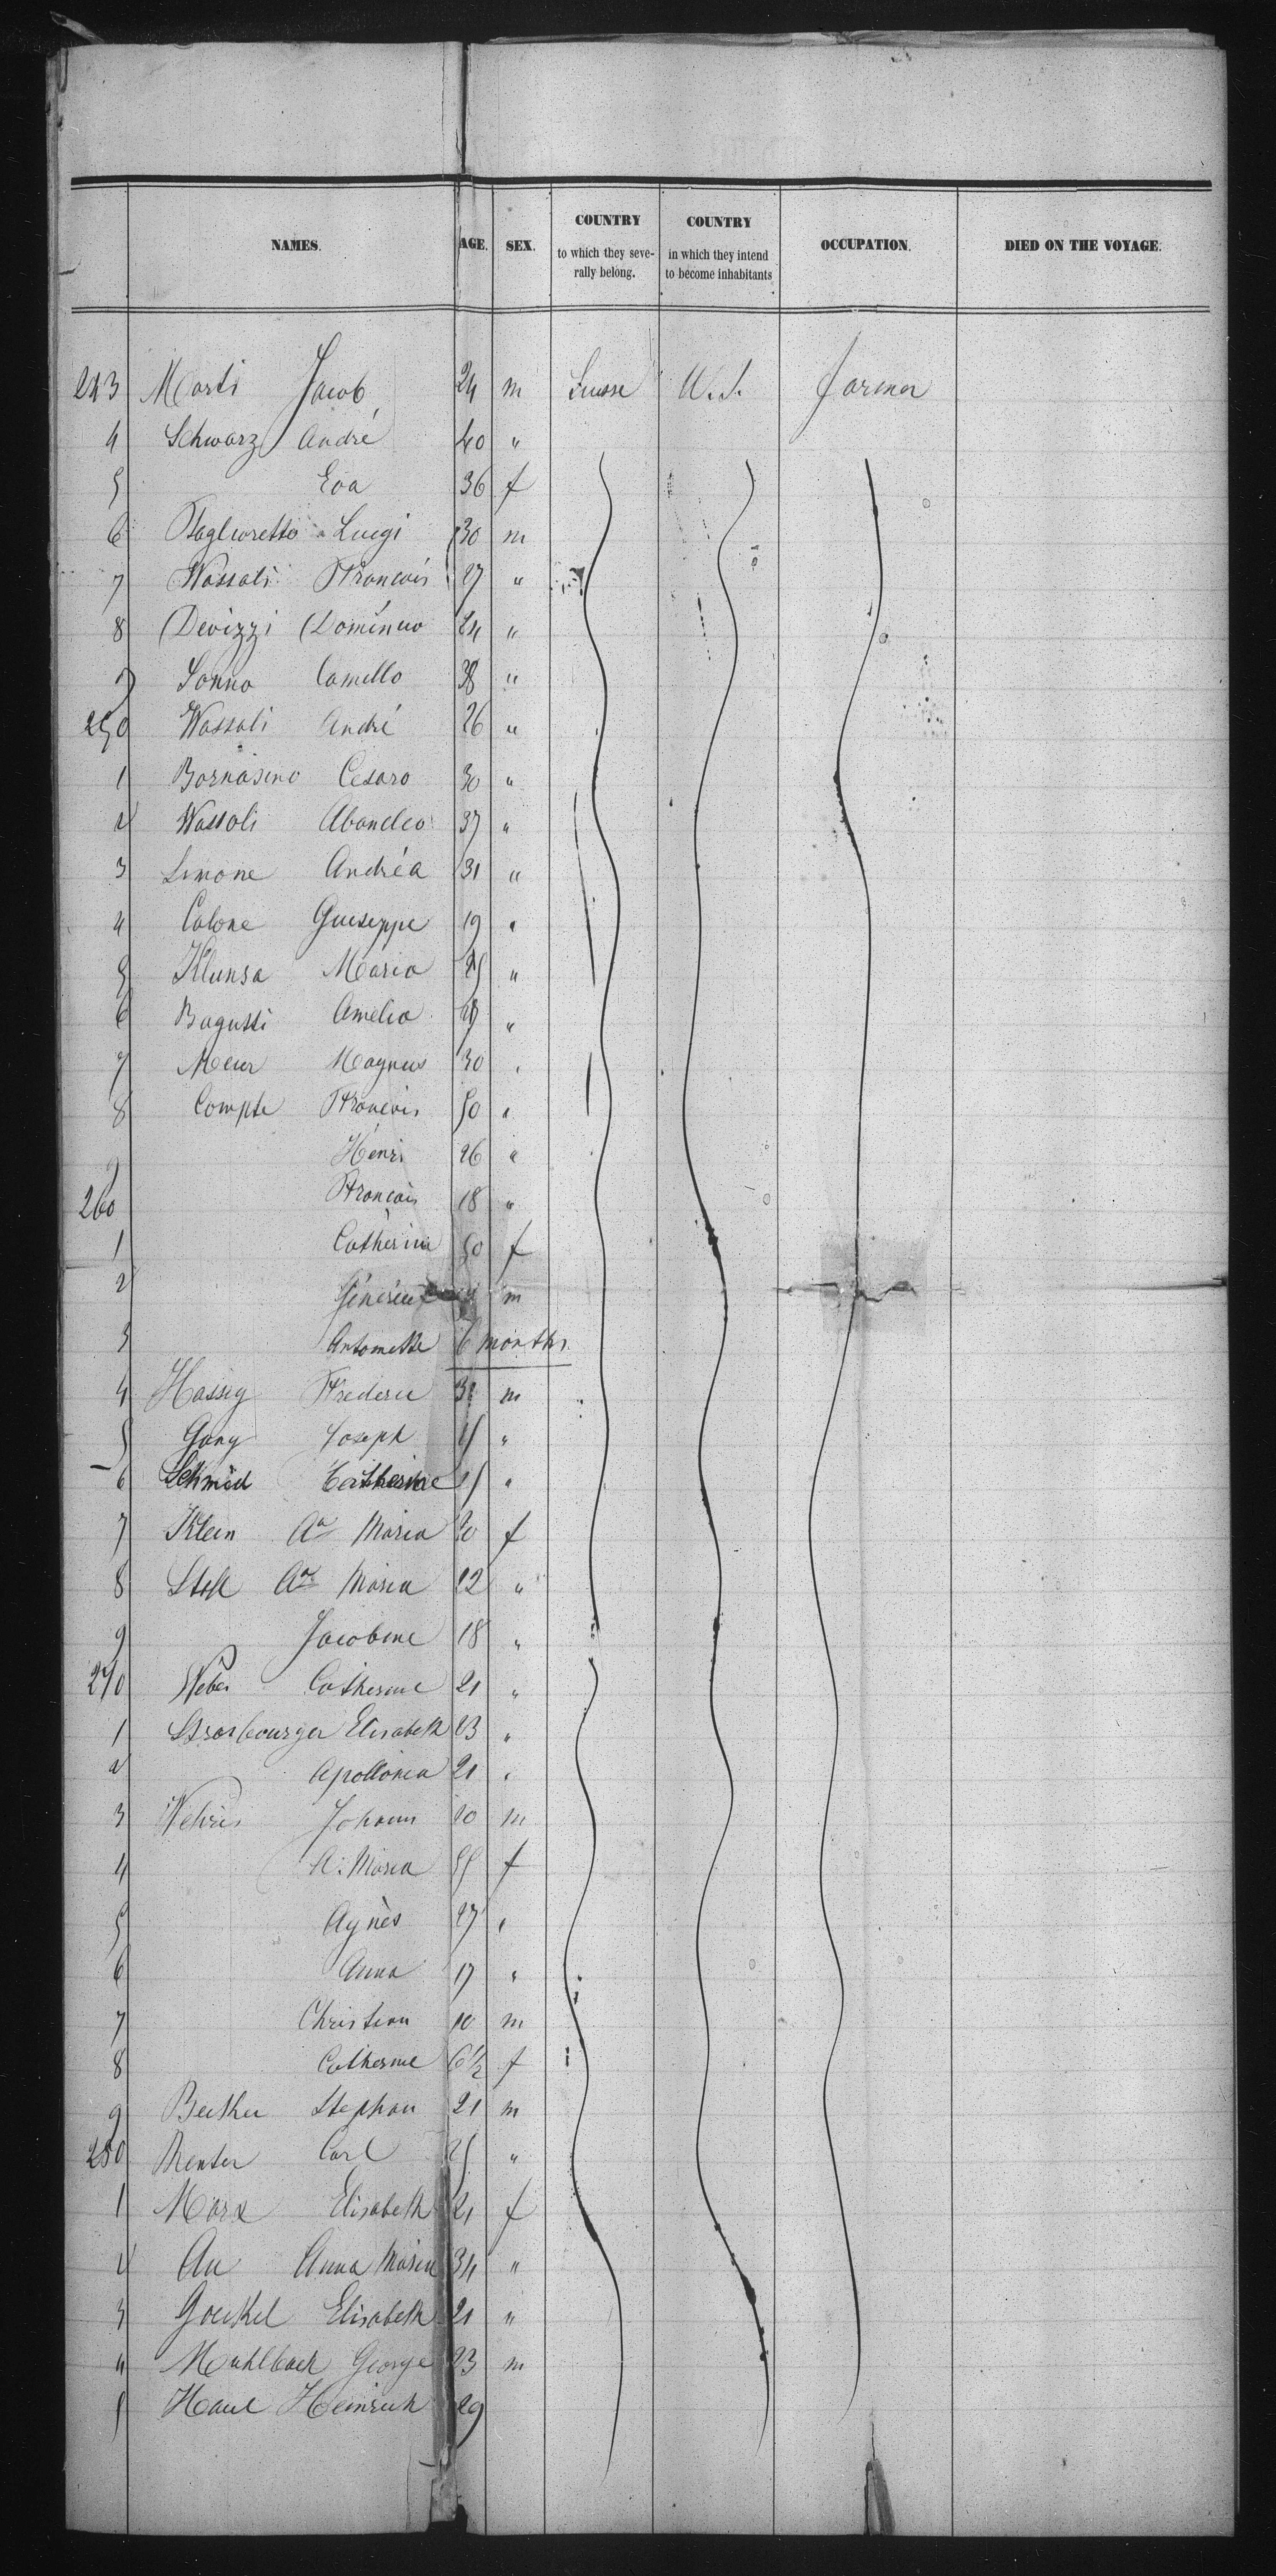 NAMES. AGE. SEX. COUNTRY to which they severally belong. COUNTRY in which they intend to become inhabitants OCCUPATION. DIED ON THE VOYAGE.
243 Marti Jacob 24 m Suisse U.S. farmer
4 Schwarz André 40 "
5 Eva 36 f
6 Taglioretto Luigi 30 m
7 Vassali François 27 "
8 Devizzi Dominico 24 "
9 Sonno Camello 38 "
250 Vassali André 26 "
1 Bornasino Cesaro 30 "
2 Vassali Abondeo 37 "
3 Simone Andréa 31 "
4 Calone Guiseppe 19 "
5 Klunsa Maria "
6 Bagutti Amelio "
7 Meier Magnus 30 "
8 Compte François 50 "
9 Henri 26 "
260 François 18 "
1 Catherine 50 f
2 m
3 Antoinette 6 months
4 Hassig Frederic m
5 Gany Joseph "
6 Schmid Catherine "
7 Klein Aa Maria 20 f
8 Aa Maria 22 "
9 Jacobine 18 "
270 Weber Catherine 21 "
1 Strasbourger Elisabeth 23 "
2 Apollonia 21 "
3 Johann m
4 A. Maria 55 f
5 Agnès 27 "
6 Anna 17 "
7 Christian 10 m
8 Catherine 6½ f
9 Becker Stephan 21 m
280 Renter Carl 25 "
1 Marx Elisabeth 21 f
2 Au Anna Maria 34 "
3 Goeckel Elisabeth 21 "
4 Muhlbach George 23 m
5 Haul Heinrich 29